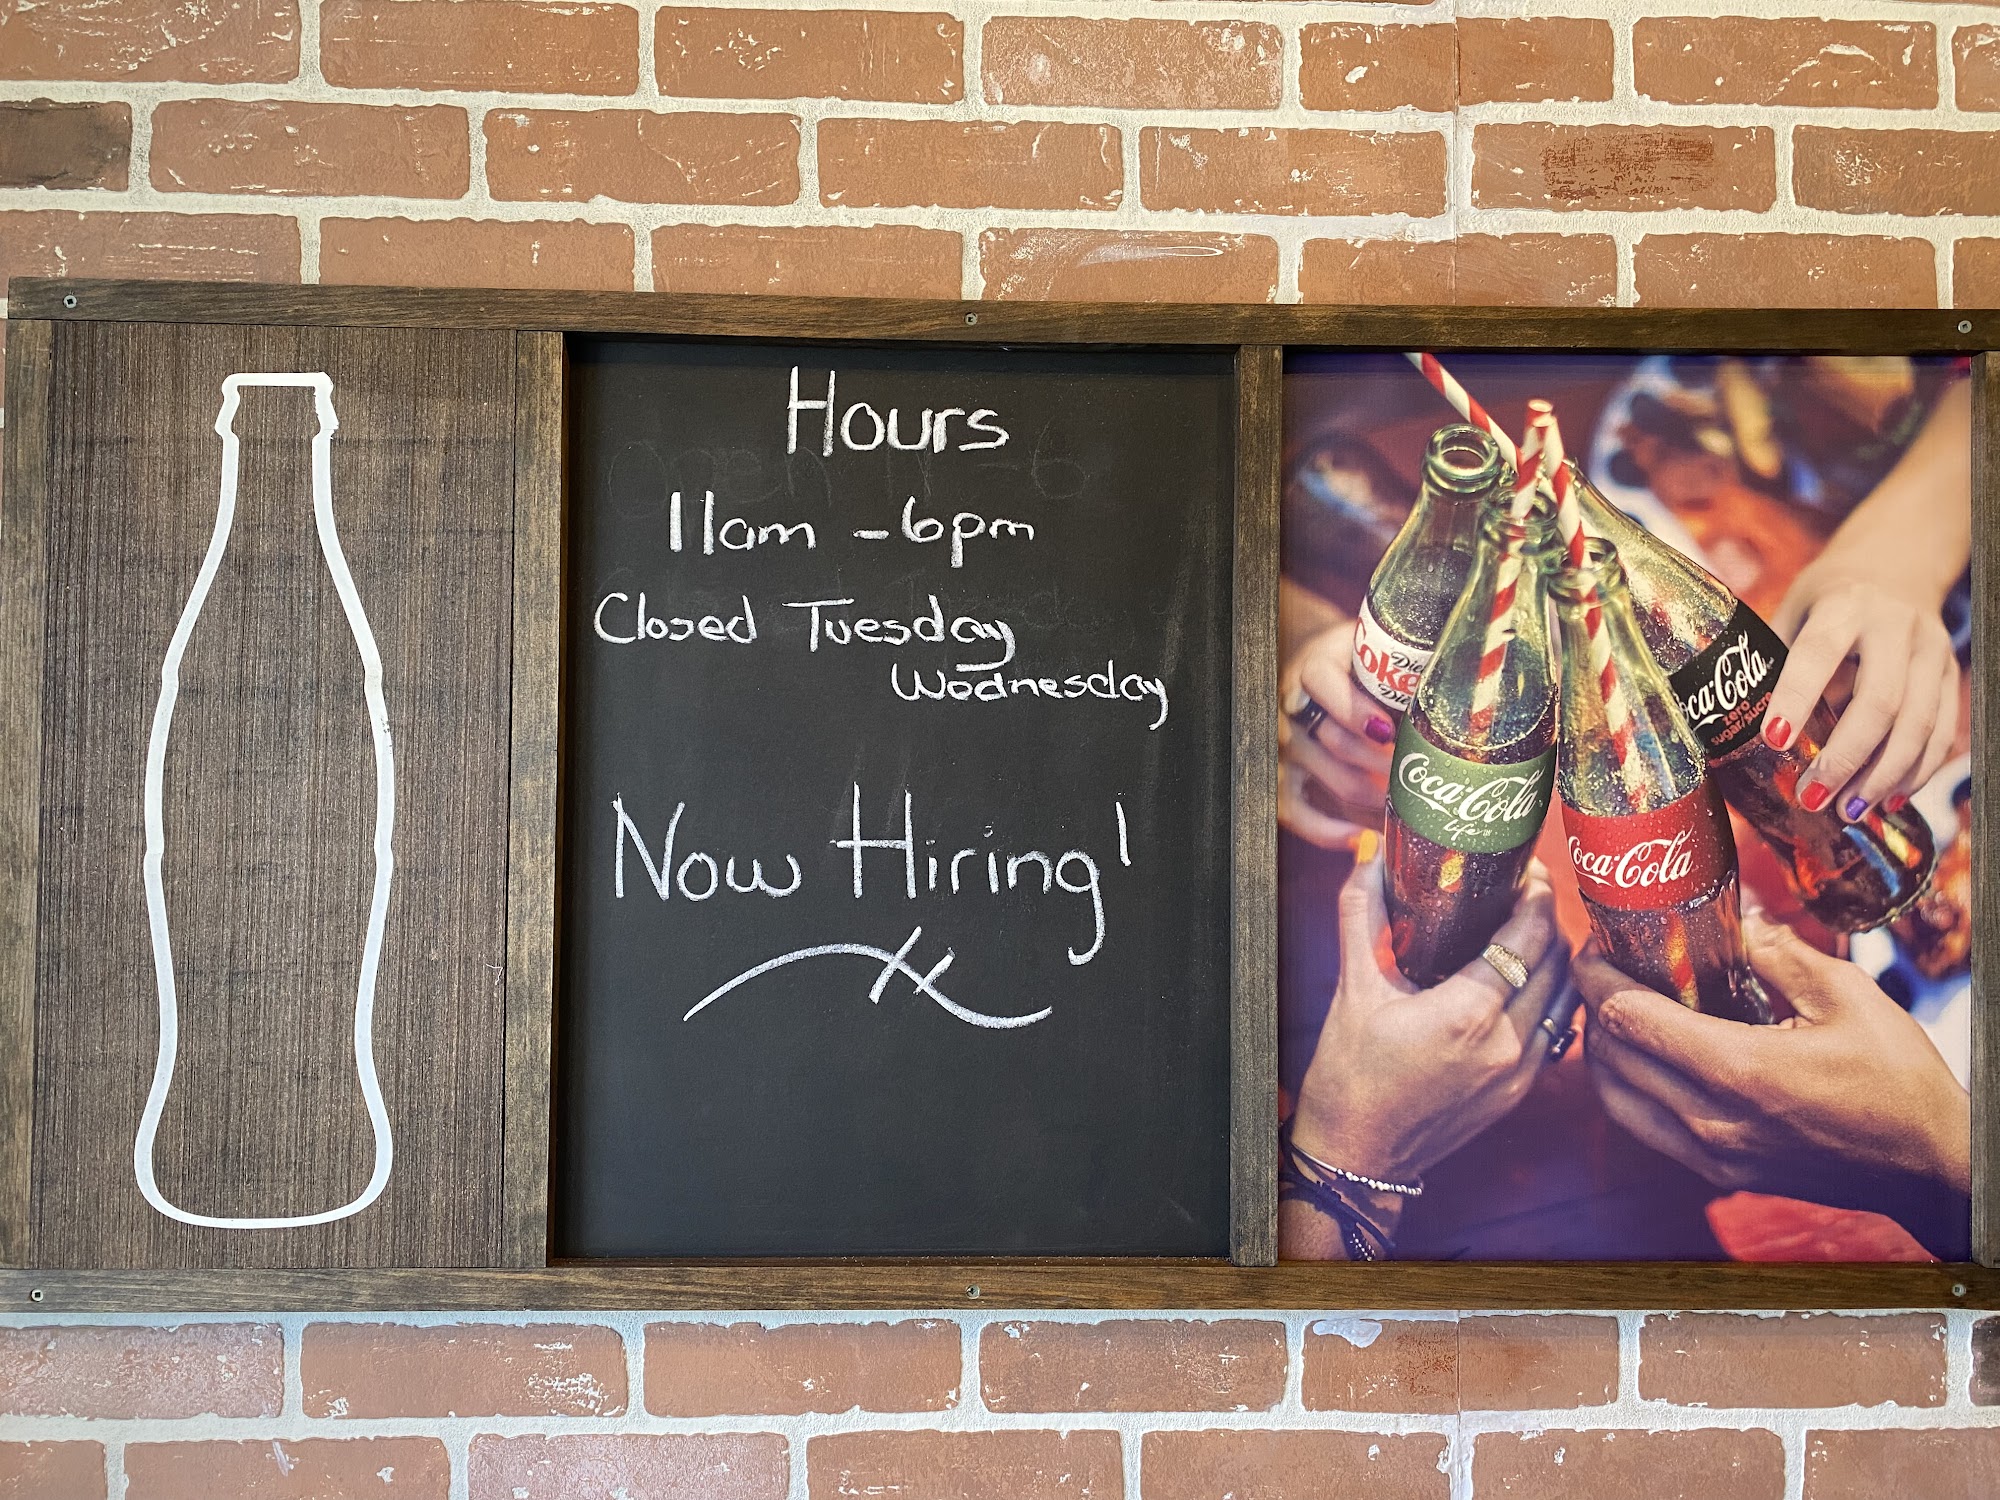 Hours
11am - 6pm
Closed Tuesday
Wednesday
Now Hiring!
Diet
Coke
Die
Coca-Cola
life
Coca-Cola
Coca-Cola
zero
sugar/sucre